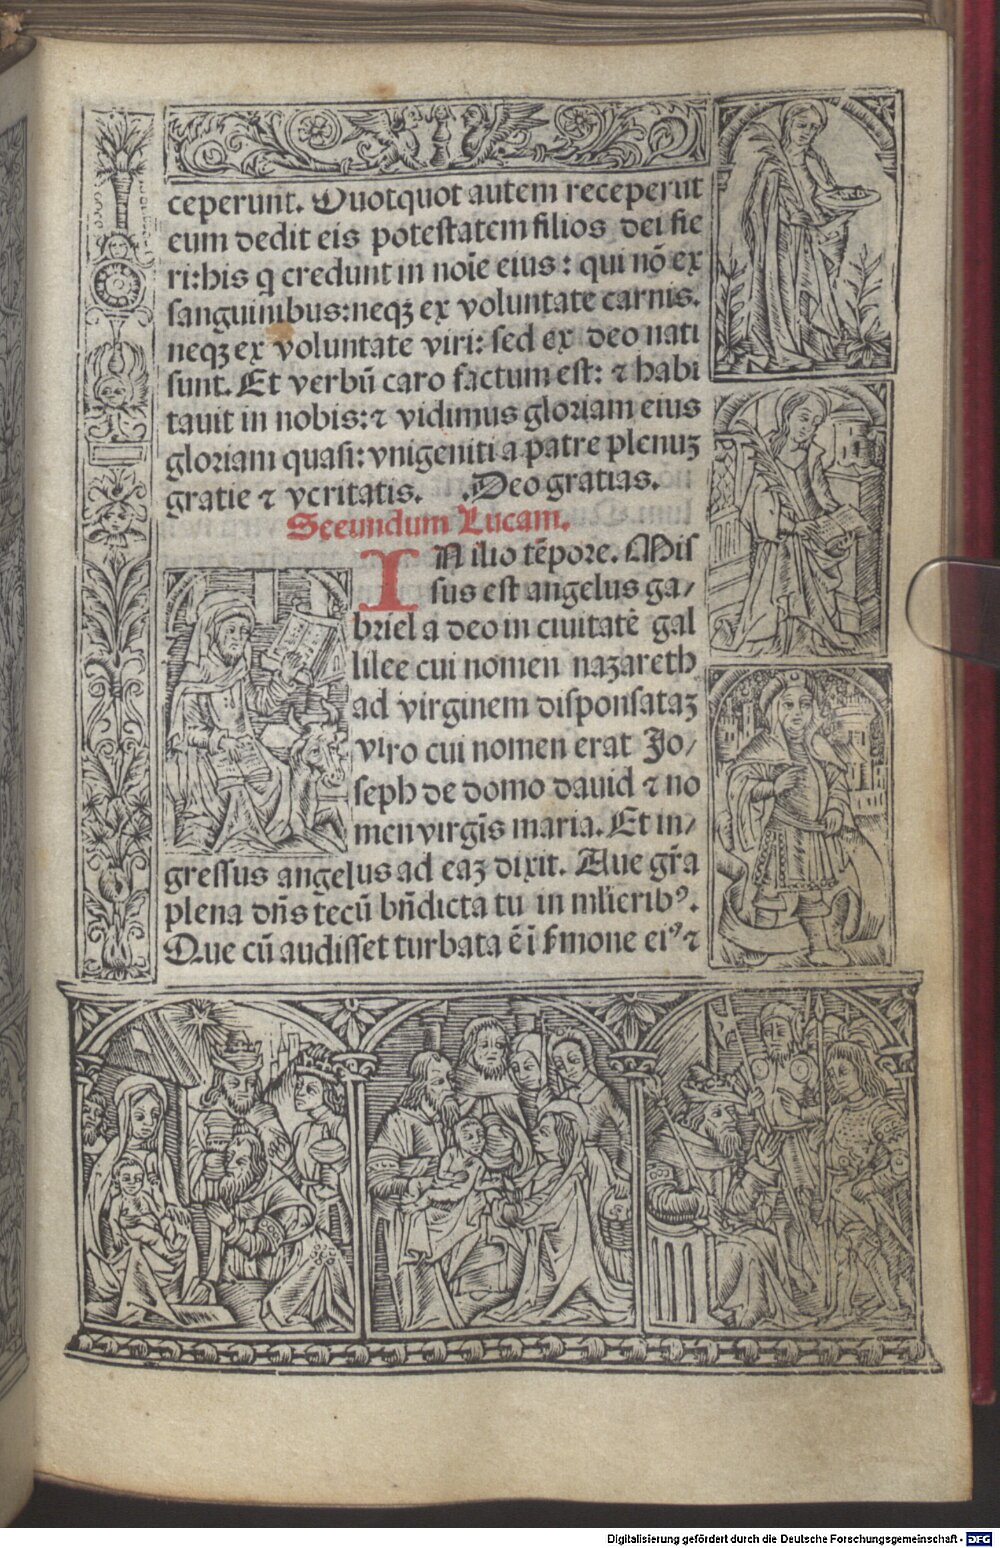 ceperunt. Quotquot autem receperūt
eum dedit eis potestatem filios dei fie
ri: his q credunt in noīe eius: qui nō ex
sanguinibus: neqꝫ ex voluntate carnis.
neqꝫ ex voluntate viri: sed ex deo nati
sunt. Et verbū caro factum est: ⁊ habi
tauit in nobis: ⁊ vidimus gloriam eius
gloriam quasi: vnigeniti a patre plenuꝫ
gratie ⁊ veritatis. .Deo gratias.
Secundum Lucam.
IN illo tēpore. Mis
sus est angelus ga/
briel a deo in ciuitatē gal
lilee cui nomen nazareth
ad virginem disponsataꝫ
viro cui nomen erat Jo/
seph de domo dauid ⁊ no
men virgīs maria. Et in/
gressus angelus ad eaꝫ dixit. Aue gr̄a
plena dn̄s tecū bn̄dicta tu in ml̓ieribꝰ.
Que cū audisset turbata ē ī s̄mone eiꝰ ⁊
Digitalisierung gefördert durch die Deutsche Forschungsgemeinschaft - DFG